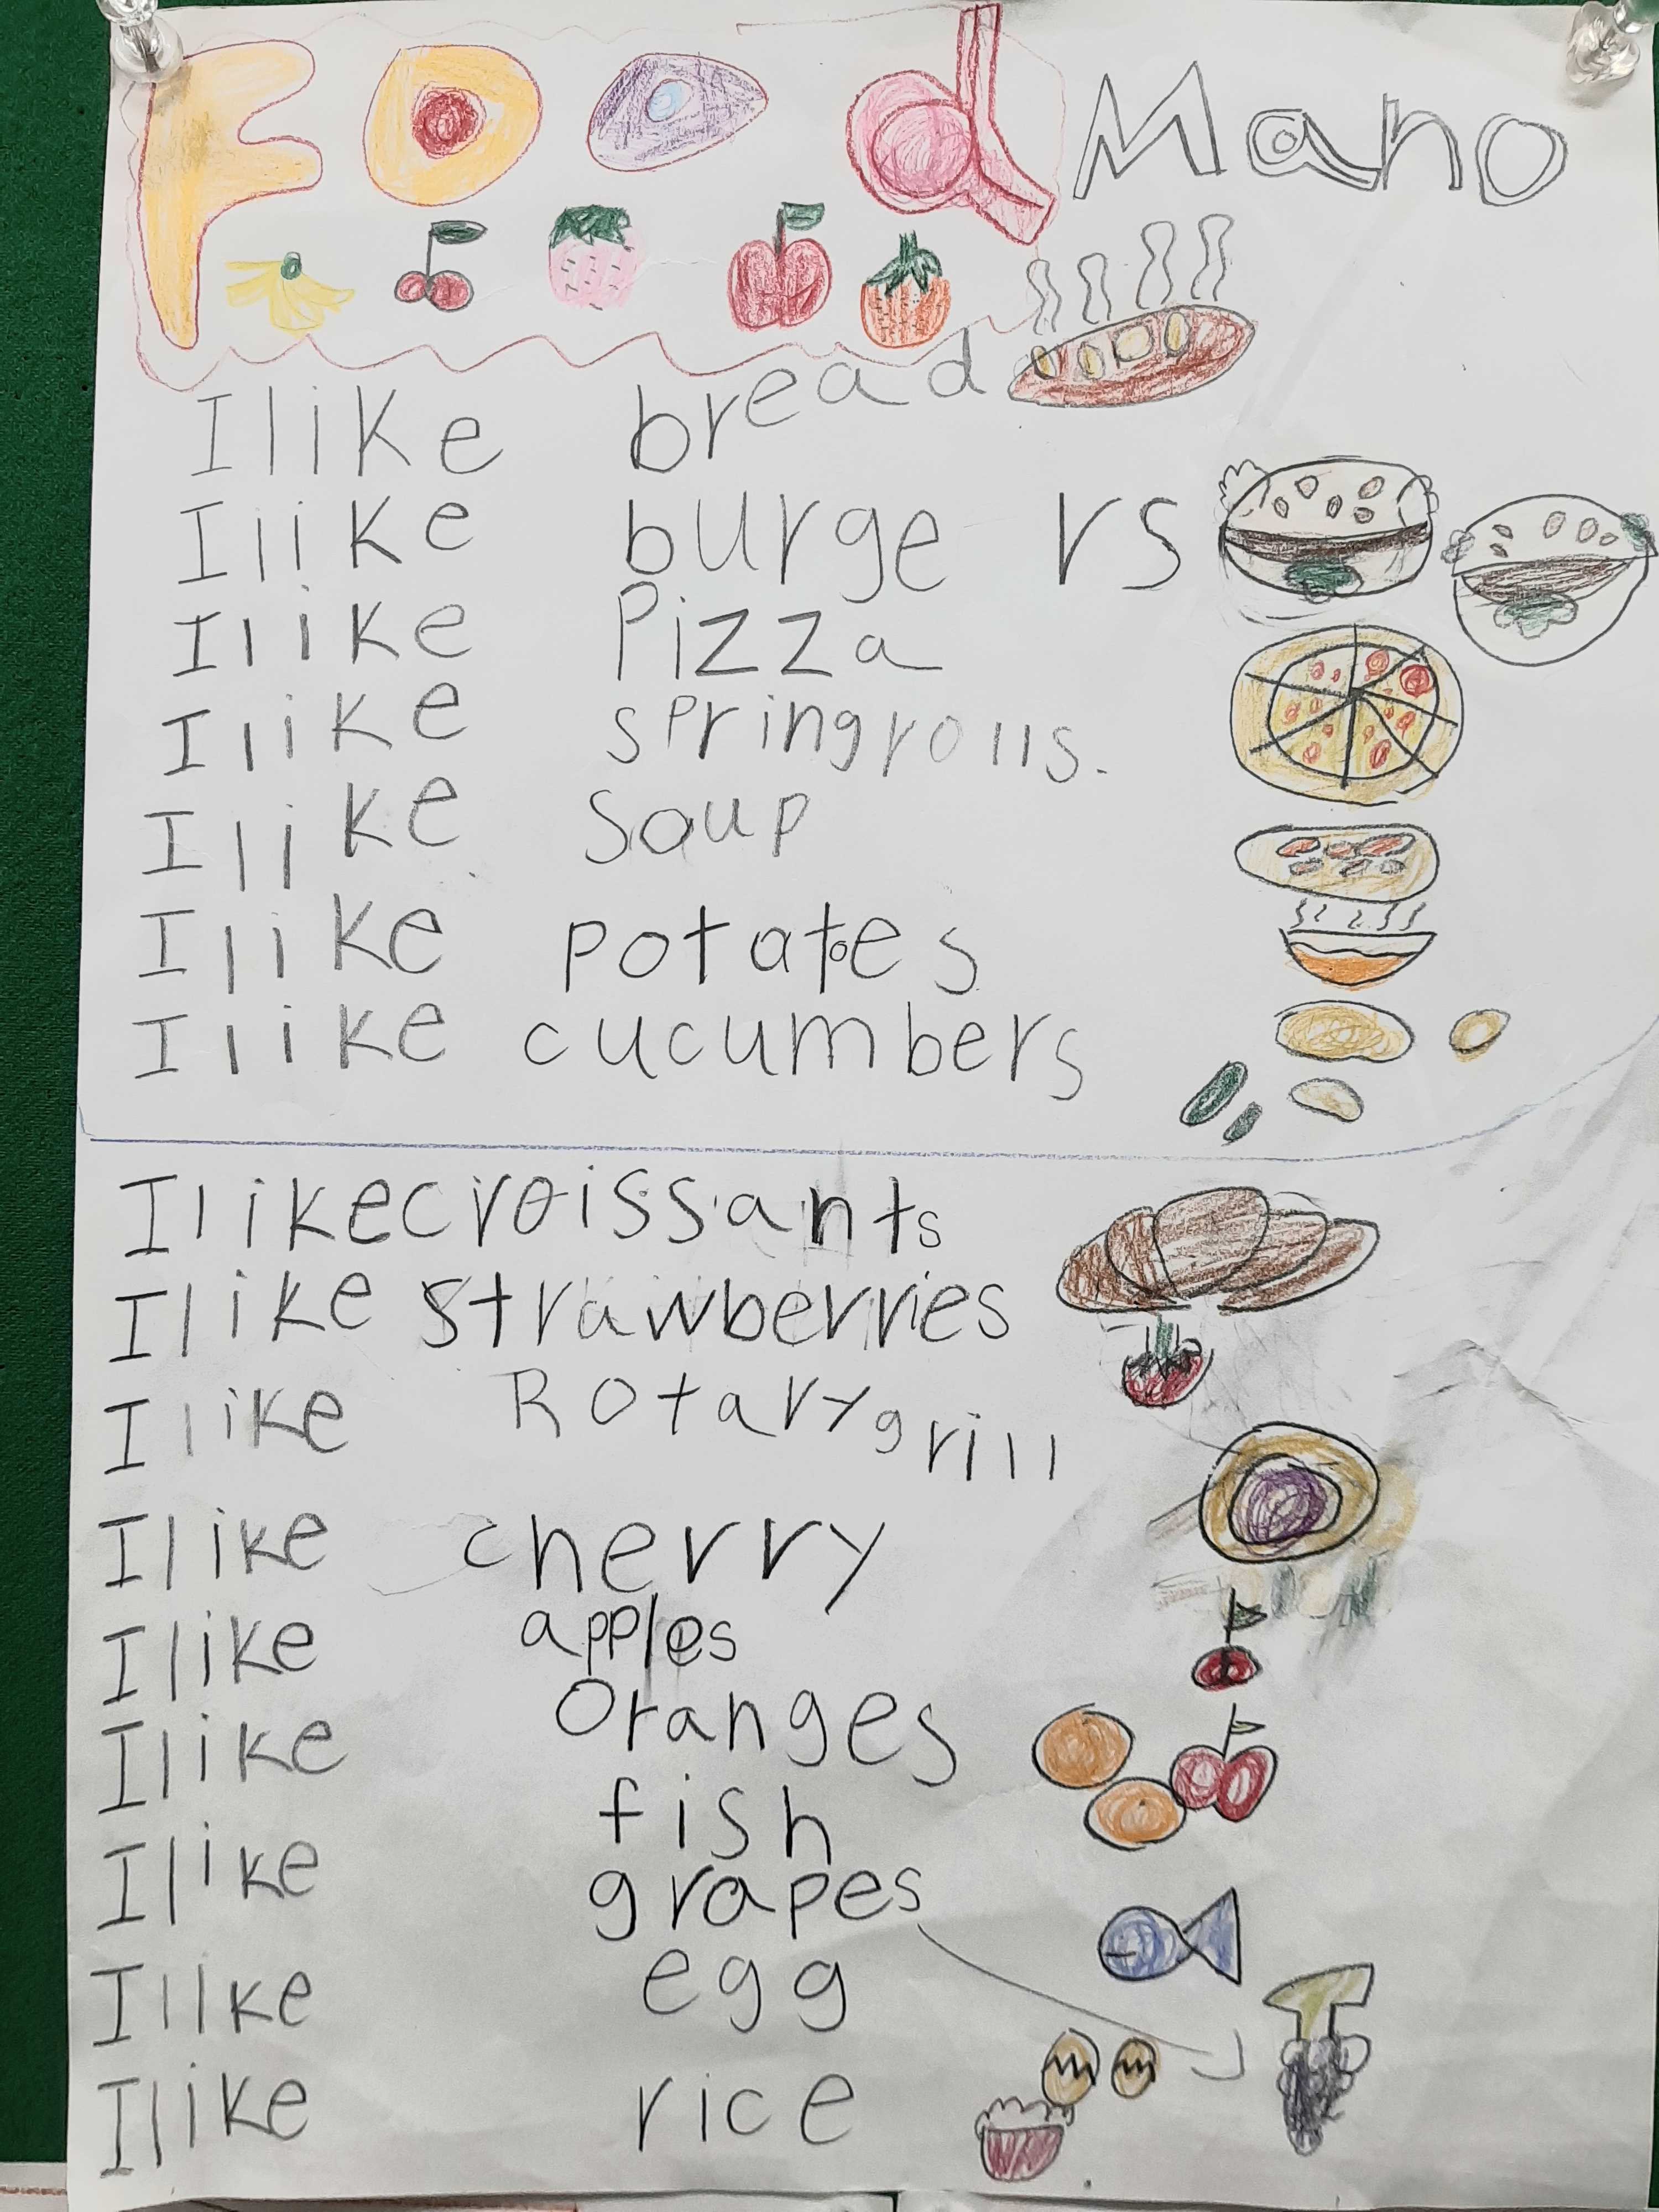 Food Mano
I like bread
I like burgers
I like Pizza
I like springrolls.
I like Soup
I like potatoes
I like cucumbers
I like croissants
I like strawberries
I like Rotary grill
I like cherry
I like apples
I like Oranges
I like fish
grapes
I like egg
I like rice